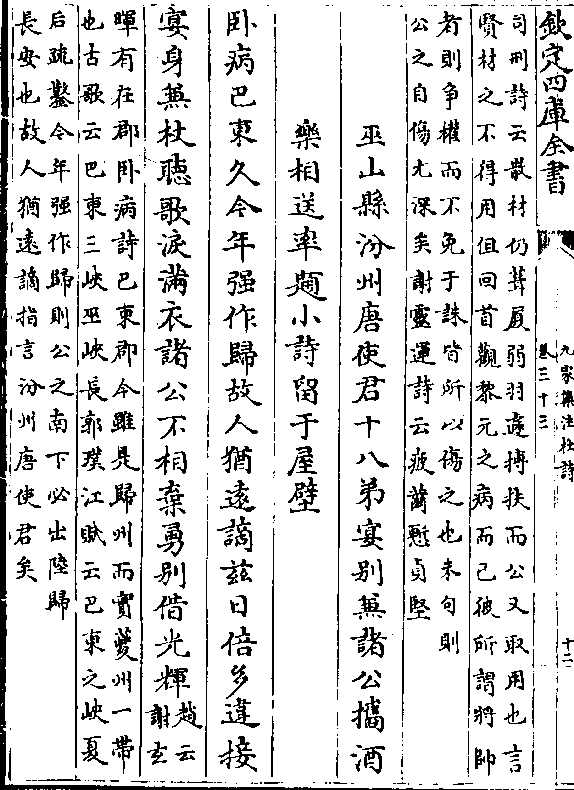 欽定四庫全書
九家集注杜詩
卷三十三
十二
司刑詩云散材仍葺厦弱羽遽摶扶而公又取用也言
賢材之不得用但回首觀黎元之病而已彼所謂將帥
者則爭權而不免于誅皆所以傷之也末句則
公之自傷尤深矣謝靈運詩云疲薾慙貞堅
巫山縣汾州唐使君十八弟宴別兼諸公擕酒
樂相送率題小詩留于屋壁
卧病巴東久今年强作歸故人猶遠謫兹日倍多違接
宴身兼杖聽歌淚滿衣諸公不相棄勇別借光輝
趙云
謝玄
暉有在郡卧病詩巴東郡今雖是歸州而實夔州一帶
也古歌云巴東三峽巫峽長郭璞江賦云巴東之峽夏
后疏鑿今年强作歸則公之南下必出陸歸
長安也故人猶遠謫指言汾州唐使君矣